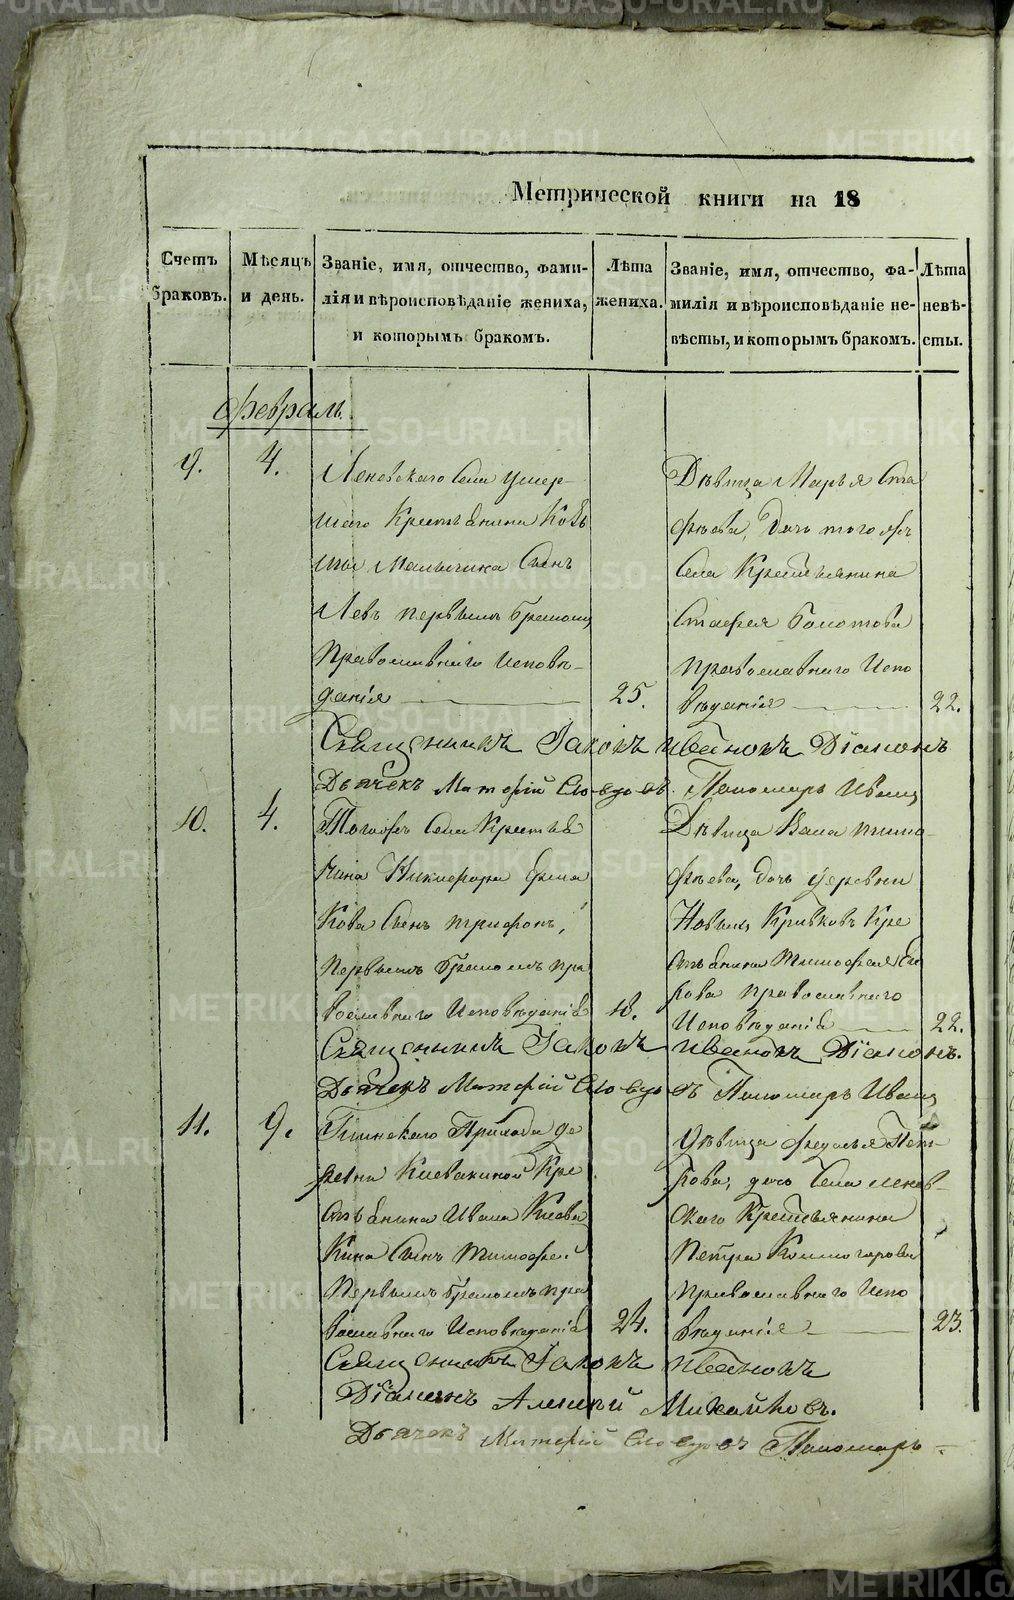 Метрической книги на 18
Счетъ браковъ.
Мѣсяцъ и день.
Званіе, имя, отчество, фами-
лія и вѣроисповѣданіе жениха,
и которымъ бракомъ.
Лѣта
жениха.
Званіе, имя, отчество, фа-
милія и вѣроисповѣданіе не-
вѣсты, и которымъ бракомъ.
Лѣта
невѣ-
сты.
Февраль
9.
4.
Леневскаго Села умер-
шаго Крестьянина
Сынъ
Левъ первымъ бракомъ
Православнаго Исповѣ-
данія
25.
Дѣвица Марья
дочь того жъ
Села Крестьянина
Болотова
православнаго Испо
вѣданія
22.
Священникъ Іаковъ Ивановъ Діаконъ
Дьячекъ Пономарь Иванъ
10.
4.
Тогожъ Села Крестья
нина Никифора
кова Сынъ Трифонъ,
первымъ бракомъ пра
вославнаго Исповѣданія
18.
Дѣвица
фѣева, дочь деревни
Новыхъ Кривковъ Кре
стьянина Тимофея
кова православнаго
Исповѣданія
22.
Священникъ Іаковъ Ивановъ Діаконъ.
Дьячекъ Пономарь Иванъ
11.
9.
Прихода де
ревни Клевакиной Кре
стьянина Ивана Клева
кина Сынъ Тимофей
Первымъ бракомъ пра
вославнаго Исповѣданія
24.
Дѣвица Федосья Пет-
рова, дочь Села Ленев-
скаго Крестьянина
Петра Колмогорова
православнаго Испо
вѣданія
23.
Священникъ Іаковъ Ивановъ
Діаконъ
Дьячекъ Пономарь
METRIKI.GASO-URAL.RU